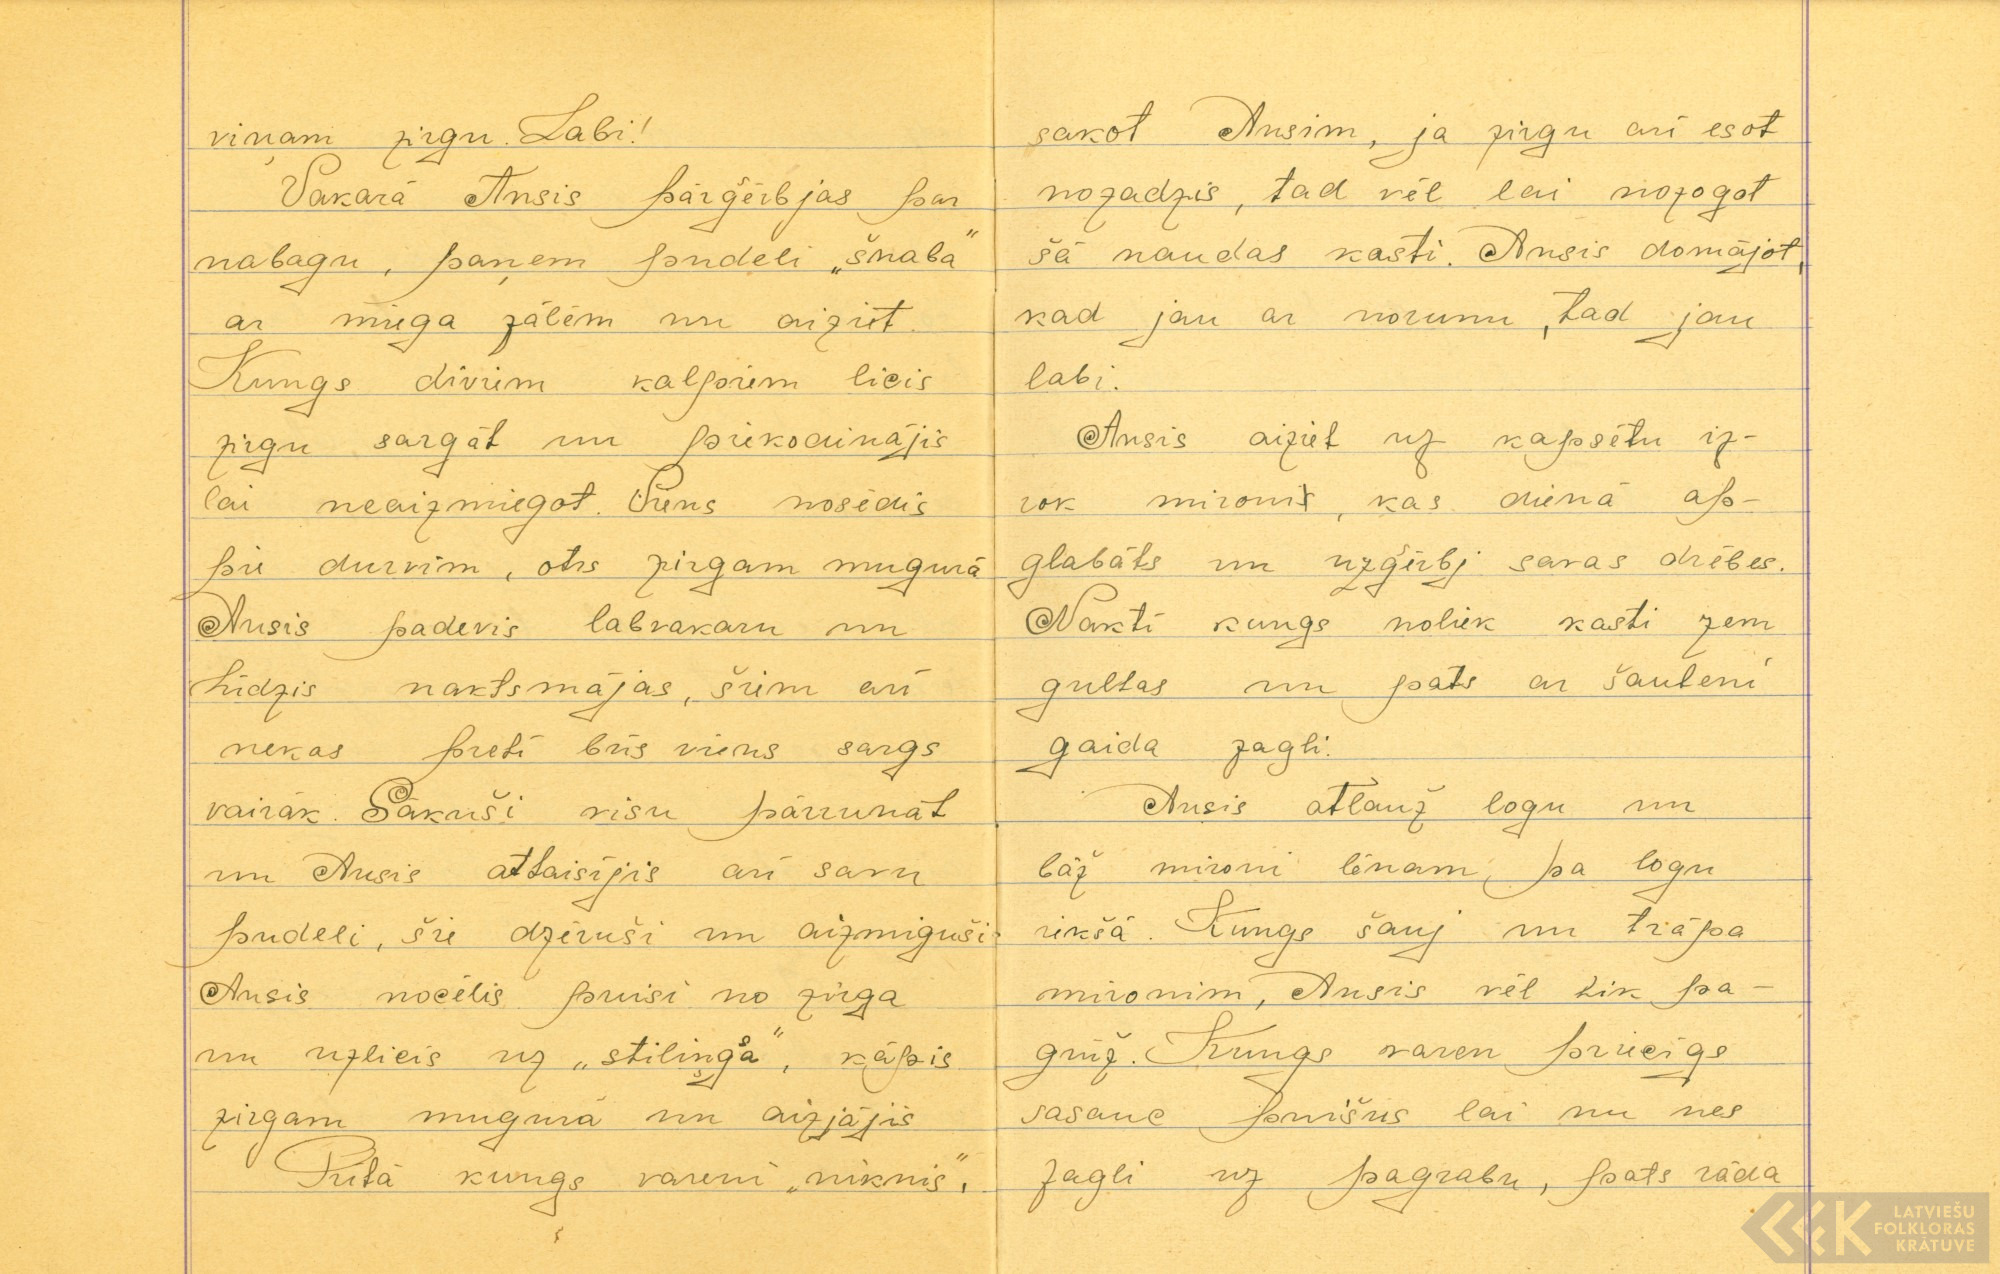 viņam zirgu. Labi!
Vakarā Ansis pārģērbjas par
nabagu, paņem pudeli „šnaba"
ar miega zālēm un aiziet.
Kungs diviem kalpiem licis
zirgu sargāt un piekodinājis
lai neaizmiegot. Viens nosēdis
pie durvīm, otrs zirgam mugurā
Ansis padevis labvakaru un
lūdzis naktsmājas, šiem arī
nekas pretī būs viens sargs
vairāk. Sākuši visu pārrunāt
un Ansis attaisījis arī savu
pudeli, šie dzēruši un aizmiguši
Ansis nocēlis puisi no zirga
un uzlicis uz „stiliņģa", kāpis
zirgam mugurā un aizjājis
Rītā kungs vareni „niknis",
sakot Ansim, ja zirgu arī esot
nozadzis, tad vēl lai nozogot
šā naudas kasti. Ansis domājot,
kad jau ar norunu, tad jau
labi.
Ansis aiziet uz kapsētu iz-
rok mironi, kas dienā ap-
glabāts un uzģērbj savas drēbes.
Naktī kungs noliek kasti zem
gultas un pats ar šauteni
gaida zagli.
Ansis atlauž logu un
bāž mironi lēnam pa logu
iekšā. Kungs šauj un trāpa
mironim, Ansis vēl tik pa-
grūž. Kungs varen priecīgs
sasauc puišus lai nu nes
zagli uz pagrabu, pats rāda
LATVIEŠU
FOLKLORAS
KRĀTUVE